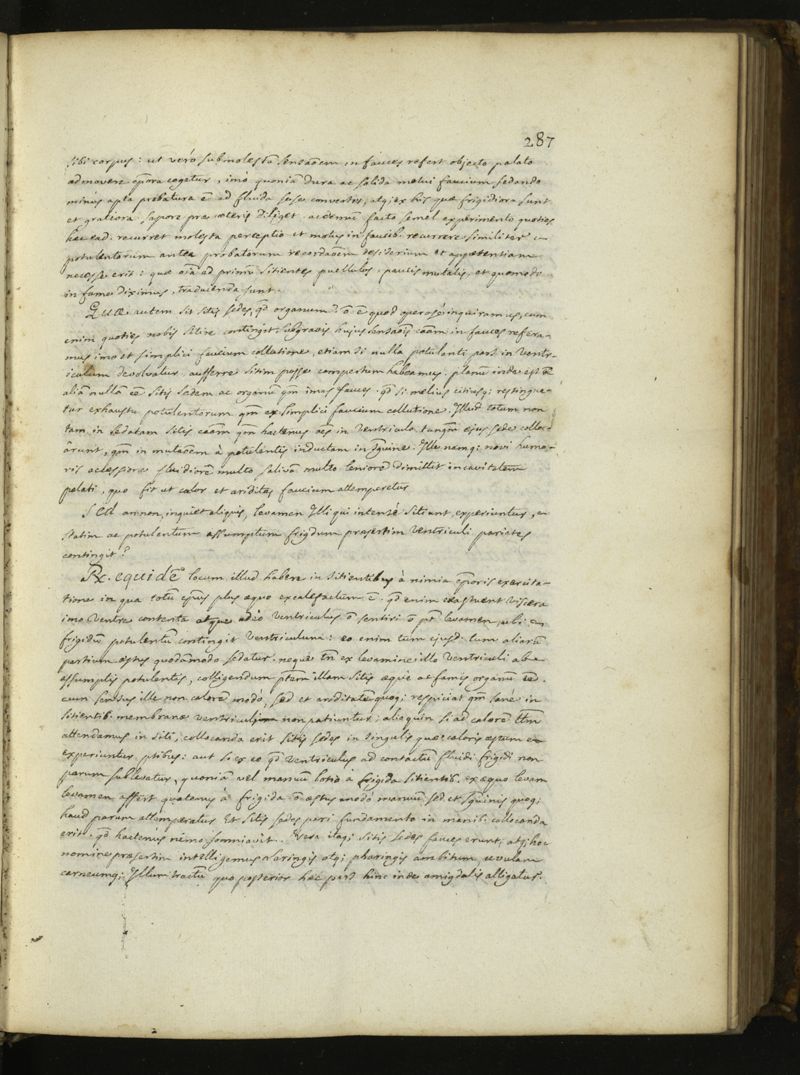 287
sibi corpus: ut verò submolestã sensaõem in fauces refert objecto palato
admovere opera cogetur, imò quoniã dura ac solida motui faucium sedando
minus apta probatura ẽ ad fluida sese convertet, atq; ex his quæ frigidiora sunt
et gratiora sapore præ cæteris diliget ac demũ facto semel experimento quoties
hæc ead: recurret molesta perceptio et motus in faucib. recurrere similiter
potulentorum antea probatorum recordaõem desiderium et appetentiam
necesse erit: quæ oĩa ad primũ sitientes puellulos, paucis mutatis, et quomodo
in fame diximus, traducenda sunt.
Quæ autem sit sitis sedes, qd organum? õ ẽ quod operosè inquiramus, cum
enim quoties nobis sitire contingit subgravis hujus sensaõis cãam in fauces refera-
mus imò et simplici faucium collutione, etiam si nulla potulenti pars in ventr-
iculum devolvatur aufferre sitim posse compertum habeamus. planũ inde est
aliã nullã eẽ sitis sedem ac organũ qm imas fauces. qd si melius citiusq; restingue-
tur exhaustu potulentorum qm ex simplici faucium collutione. Illud totum non
tam in sedatam sitis cãam qm hactenus oẽs in ventriculo tanqm ejus sede colloc-
árunt, qm in mutaõem à potulentis inductam in sguine. Ille namq; novi humo-
ris accessione fluidiorẽ multo salivã multo leniorẽ dimittit in cavitatem
palati, quo fit ut calor et ariditas faucium attemperetur
Sed annon, inquiet aliquis, levamen illi qui intensè sitiunt, experiuntur,
statim ac potulentum assumptum frigidum præsertim ventriculi parietes
contingit?
Rx. equidẽ locum illud habere in sitientibus à nimia corporis exercita-
tione in qua totũ corpus plus æquo excalefactum ẽ. qd enim exæstuent viscera
imo ventre contenta atque adeò ventriculus õ sentiri õ pt levamen ubi
frigidũ potulentũ contingit ventriculum: eo enim tum ejusd. tum aliarũ
partium æstus quodammodo sedatur. neque tñ ex levamine illo ventriculi ab
assumptis potulentis, colligendum ptem illam sitis æque ac famis organũ eẽ.
cum sensus ille non calorẽ modò, sed et ariditatem quoq; respiciat qm sanè in
sitientib. membranæ ventriculi non patiuntur: alioquin si ad calorẽ ttm
attendamus in siti, collocanda erit sitis sedes in singulis quæ caloris æstum
experiuntur ptibus: aut si ex eo qd ventriculus ad contactũ fluidi frigidi non
parum sublevatur, quoniã vel manuũ lotio à frigida sitientib. ex æquo levam
levamen affert quatenus à frigida õ æstus modò manuũ sed et sguinis quoq;
haud parum attemperatur et sitis sedes pari fundamento in manib. collocanda
erit. qd hactenus nemo somniavit. Vera itaq; sitis sedes fauces erunt, atq; hoc
nomine præsertim intelligemus laringis atq; pharingis ambitum, uvulam
carneumq; illum tractũ quo posterior hæc pars hinc inde amigdalis alligatur.